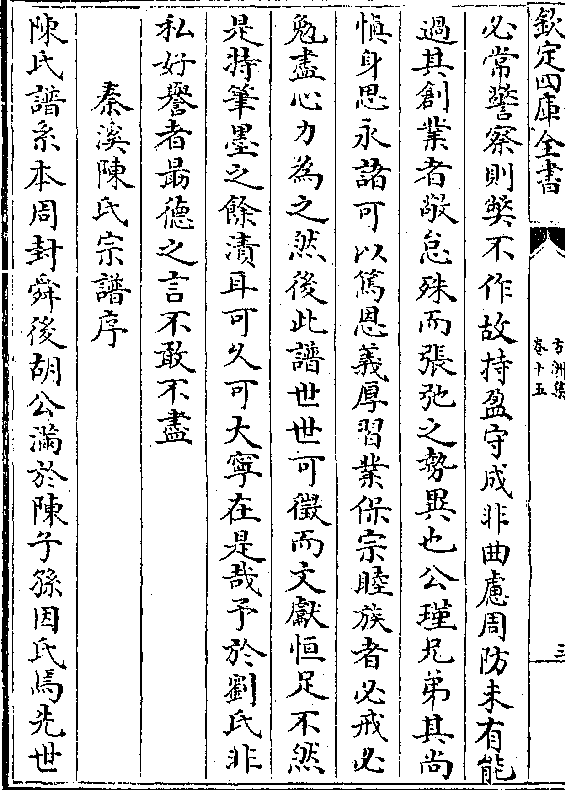 欽定四庫全書
方洲集
卷十五
三
必常警察則獘不作故持盈守成非曲慮周防未有能
過其創業者敬怠殊而張弛之勢異也公瑾兄弟其尚
愼身思永諸可以篤恩義厚習業保宗睦族者必戒必
勉盡心力為之然後此譜世世可徵而文獻恒足不然
是特筆墨之餘漬耳可久可大寧在是哉予於劉氏非
私好譽者最德之言不敢不盡
秦溪陳氏宗譜序
陳氏譜系本周封舜後胡公滿於陳子孫因氏焉先世